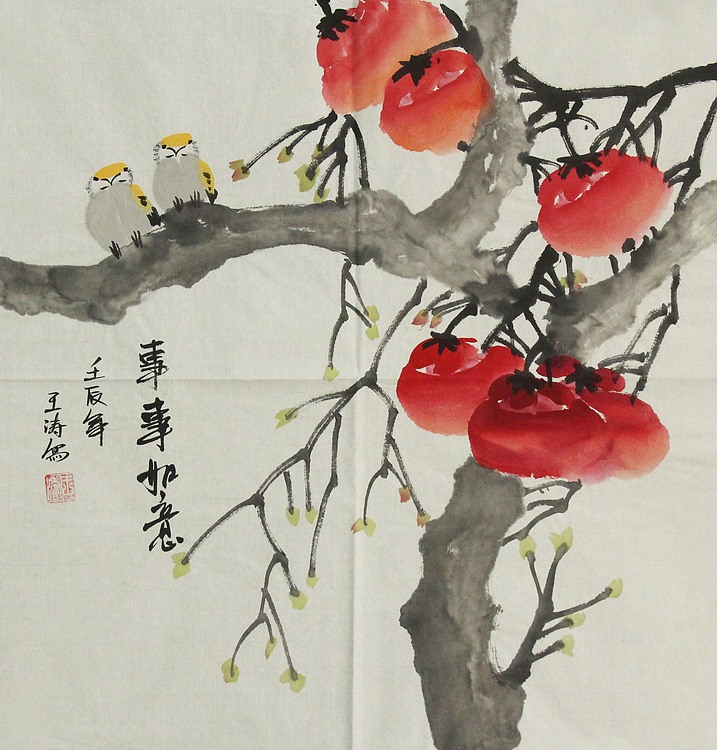 事事如意
壬辰年
王涛写